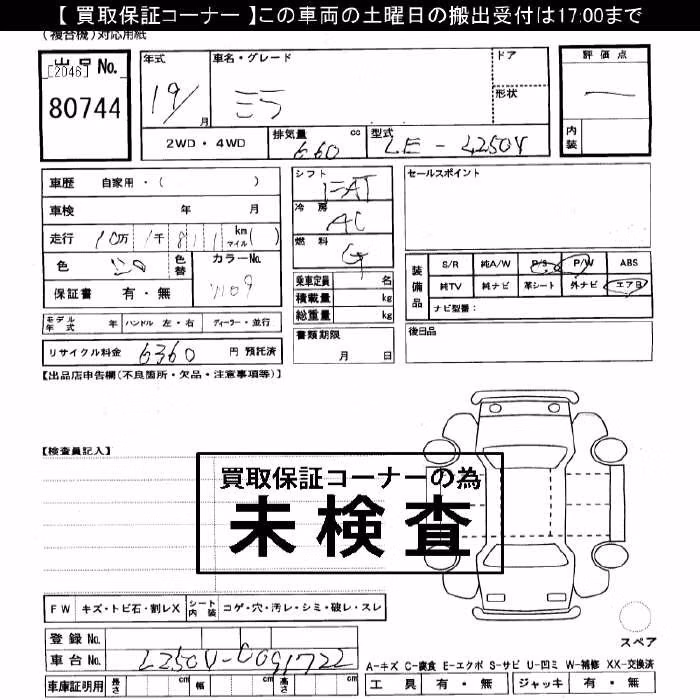 【 買取保証コーナー 】この車両の土曜日の搬出受付は17:00まで
(複合機)対応用紙
出品 No.
[2046]
80744
年式
19/
月
車名・グレード
ミラ
ドア
形状
評価点
内装
2WD・4WD
排気量 cc
660
型式
LE - L250V
車歴 自家用・( )
車検 年 月
走行 10万 1千 811 km マイル( )
色
色替
カラーNo.
保証書 有・無
モデル年式 年
ハンドル 左・右
ディーラー・並行
リサイクル料金 6360 円 預託済
シフト
FAT
冷房
AC
燃料
G
乗車定員 名
積載量 kg
総重量 kg
書類期限
月 日
セールスポイント
装備品
S/R 純A/W P/S P/W ABS
純TV 純ナビ 革シート 外ナビ エアB
ナビ型番:
後日品
【出品店申告欄(不良箇所・欠品・注意事項等)】
【検査員記入】
買取保証コーナーの為
未検査
FW キズ・トビ石・割レX
シート内装 コゲ・穴・汚レ・シミ・破レ・スレ
登録 No.
車台 No. L250V-0091722
車庫証明用 長さ cm 幅 cm 高さ cm
スペア
A-キズ C-腐食 E-エクボ S-サビ U-凹ミ W-補修 XX-交換済
工具 有・無 ジャッキ 有・無